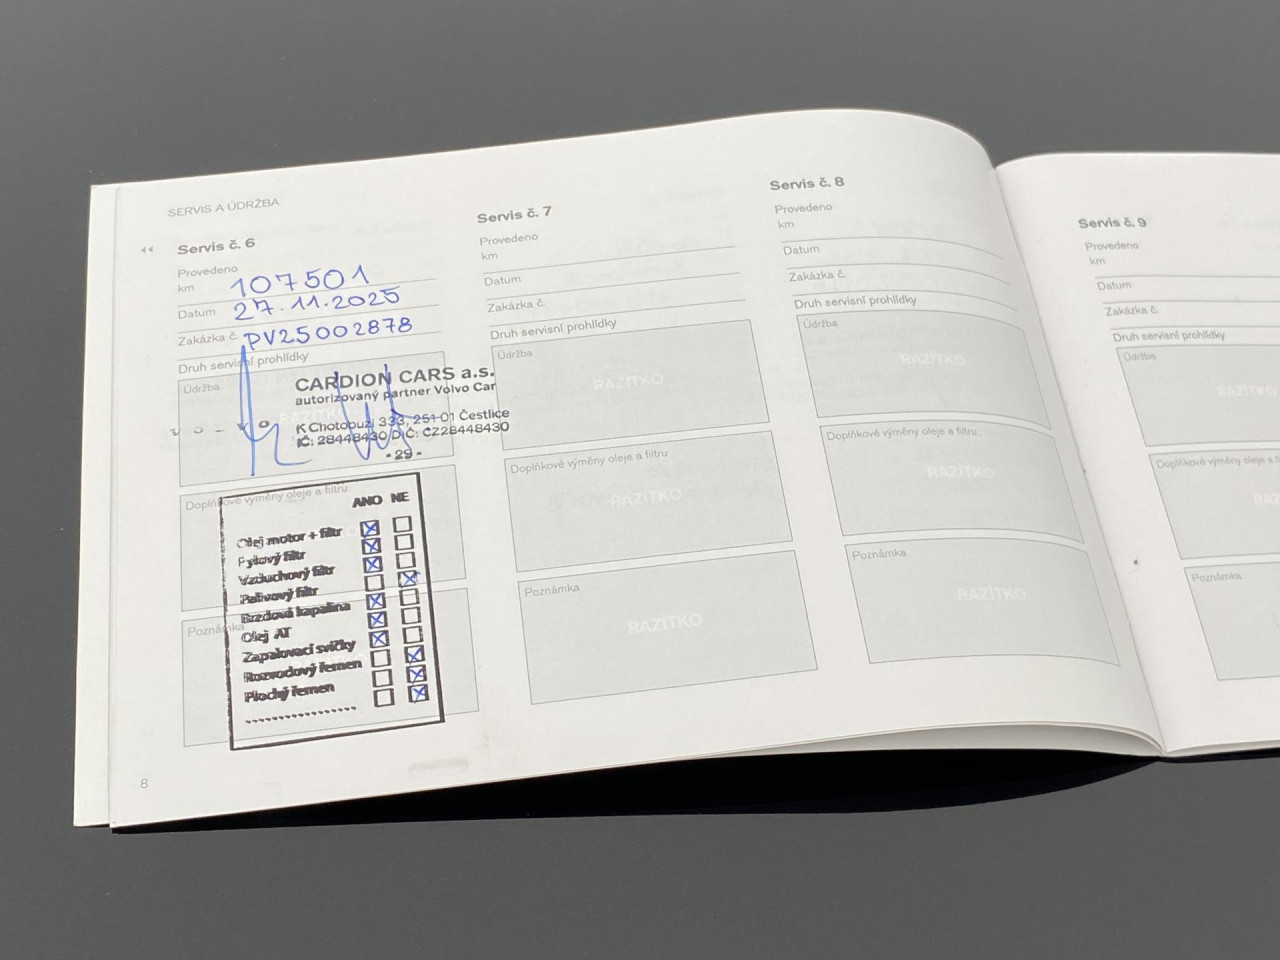 SERVIS A ÚDRŽBA
Servis č. 6
Provedeno
km 107501
Datum 27.11.2025
Zakázka č. PV25002878
Druh servisní prohlídky
Údržba
RAZÍTKO
CARDION CARS a.s.
autorizovaný partner Volvo Car
K Chotobuzi 333, 251 01 Čestlice
IČ: 28448430 DIČ: CZ28448430
-29-
Doplňkové výměny oleje a filtru
ANO NE
Olej motor + filtr
Pylový filtr
Vzduchový filtr
Palivový filtr
Brzdová kapalina
Olej AT
Zapalovací svíčky
Rozvodový řemen
Plochý řemen
Poznámka
8
Servis č. 7
Provedeno
km
Datum
Zakázka č.
Druh servisní prohlídky
Údržba
RAZÍTKO
Doplňkové výměny oleje a filtru
RAZÍTKO
Poznámka
RAZÍTKO
Servis č. 8
Provedeno
km
Datum
Zakázka č.
Druh servisní prohlídky
Údržba
RAZÍTKO
Doplňkové výměny oleje a filtru
RAZÍTKO
Poznámka
RAZÍTKO
Servis č. 9
Provedeno
km
Datum
Zakázka č.
Druh servisní prohlídky
Údržba
RAZÍTKO
Doplňkové výměny oleje a
Poznámka